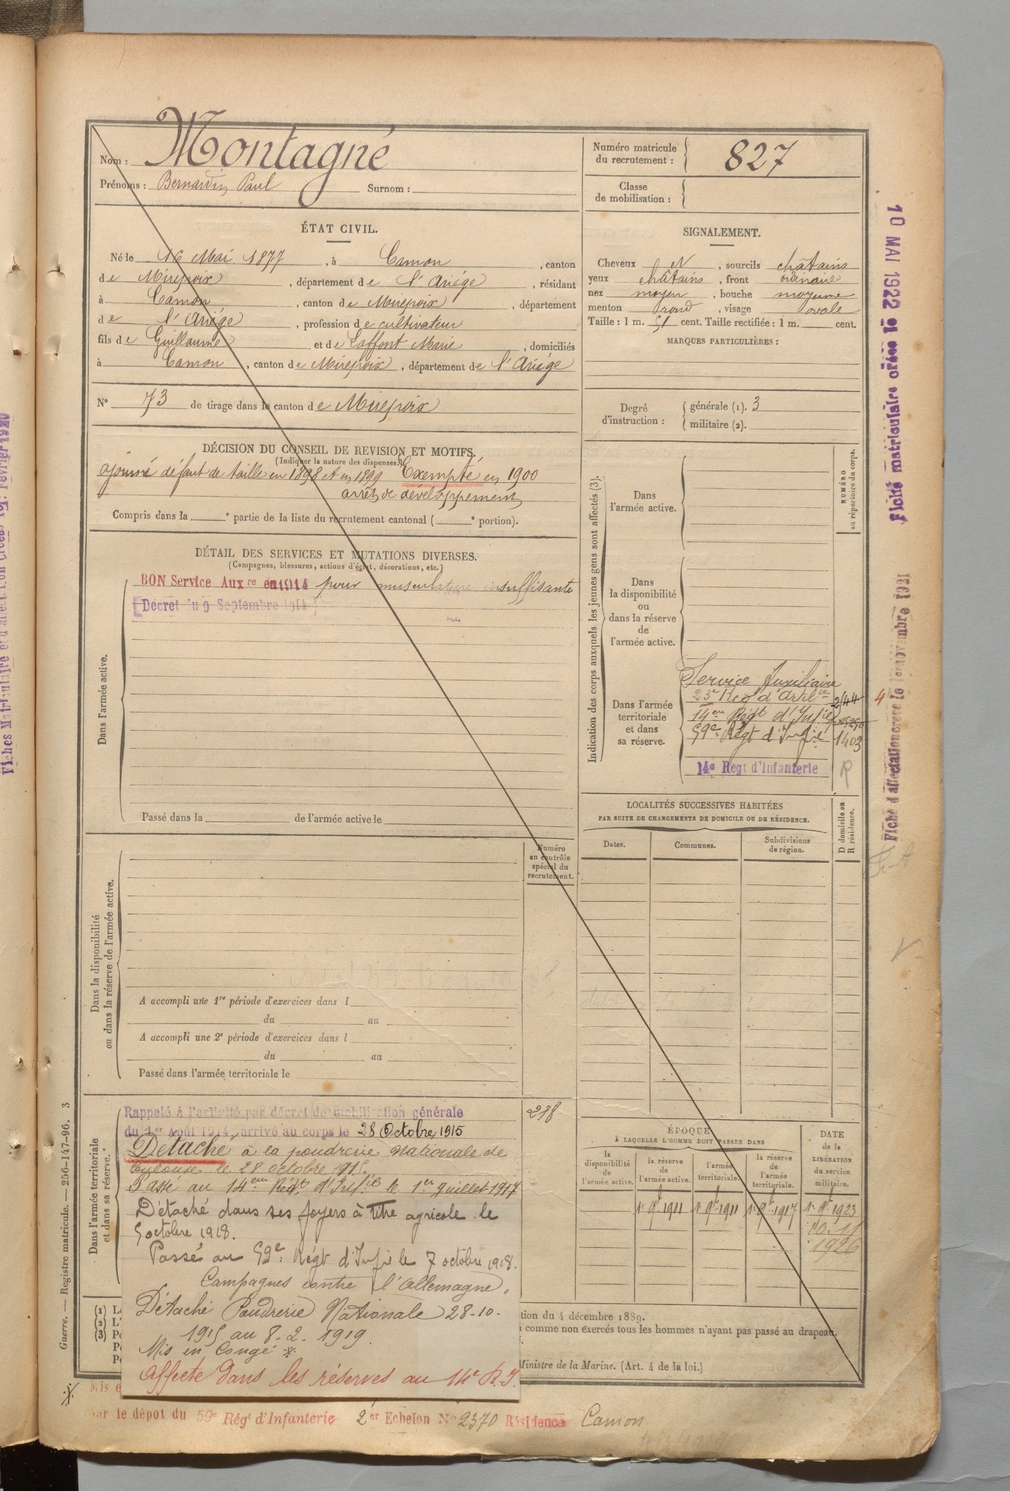 Nom : Montagné
Prénoms : Bernardin Paul Surnom :
Numéro matricule
du recrutement : 827
Classe
de mobilisation :
ÉTAT CIVIL.
Né le 16 Mai 1877, à Camon, canton
de Mirepoix, département de l'Ariège, résidant
à Camon, canton de Mirepoix, département
de l'Ariège, profession de cultivateur
fils de Guillaume et de Laffont Marie, domiciliés
à Camon, canton de Mirepoix, département de l'Ariège
N° 73 de tirage dans le canton de Mirepoix
SIGNALEMENT.
Cheveux N, sourcils châtains
yeux châtains, front ordinaire
nez moyen, bouche moyenne
menton rond, visage ovale
Taille : 1 m. 51 cent. Taille rectifiée : 1 m. cent.
MARQUES PARTICULIÈRES :
Degré
d'instruction :
générale (1). 3
militaire (2).
DÉCISION DU CONSEIL DE REVISION ET MOTIFS.
(Indiquer la nature des dispenses.)
ajourné défaut de taille en 1898 et en 1899 Exempté en 1900
arrêt de développement
Compris dans la e partie de la liste du recrutement cantonal ( e portion).
DÉTAIL DES SERVICES ET MUTATIONS DIVERSES.
(Campagnes, blessures, actions d'éclat, décorations, etc.)
BON Service Aux re en 1914 pour musculature insuffisante
Décret du 9 Septembre 1914
Dans l'armée active.
Passé dans la de l'armée active le
Dans la disponibilité
ou dans la réserve de l'armée active.
Numéro
au contrôle
spécial du
recrutement.
A accompli une 1re période d'exercices dans l
du au
A accompli une 2e période d'exercices dans l
du au
Passé dans l'armée territoriale le
Indication des corps auxquels les jeunes gens sont affectés (3).
NUMÉRO
au répertoire du corps.
Dans
l'armée active.
Dans
la disponibilité
ou
dans la réserve
de
l'armée active.
Dans l'armée
territoriale
et dans
sa réserve.
Service Auxiliaire
23e Rég d'Art
14em Régt d'Inf
59e Régt d'Inf 1403
14e Régt d'Infanterie R
LOCALITÉS SUCCESSIVES HABITÉES
PAR SUITE DE CHANGEMENTS DE DOMICILE OU DE RÉSIDENCE.
Dates.
Communes.
Subdivisions
de région.
D domicile ou
R résidence.
Dans l'armée territoriale
et dans sa réserve.
Rappelé à l'activité par décret de mobilisation générale
du 1er Août 1914, arrivé au corps le 28 Octobre 1915
Détaché à la poudrerie Nationale de
Toulouse le 28 octobre 915
Passé au 14em Régt d'Inf le 1er Juillet 1917
Détaché dans ses foyers à titre agricole le
5 octobre 1918.
Passé au 59e Régt d'Inf le 7 octobre 1918.
Campagnes contre l'Allemagne.
Détaché Poudrerie Nationale 28-10-
1915 au 8-2-1919.
Mis en Congé
Affecté dans les réserves au 14e R.I.
238
ÉPOQUE
À LAQUELLE L'HOMME DOIT PASSER DANS
la
disponibilité
de
l'armée active.
la réserve
de
l'armée active.
l'armée
territoriale.
la réserve
de
l'armée
territoriale.
DATE
de la
LIBÉRATION
du service
militaire.
1917
1923
1926
tion du 4 décembre 1889.
comme non exercés tous les hommes n'ayant pas passé au drapeau
Ministre de la Marine. (Art. 4 de la loi.)
par le dépôt du 59e Rég d'Infanterie 2e Echelon N° 2370 Résidence Camon
Guerre. — Registre matricule. — 256-147-96. 3
10 MAI 1922 Fiche matriculaire créée le
Fiche d'affectation créée le novembre 1921